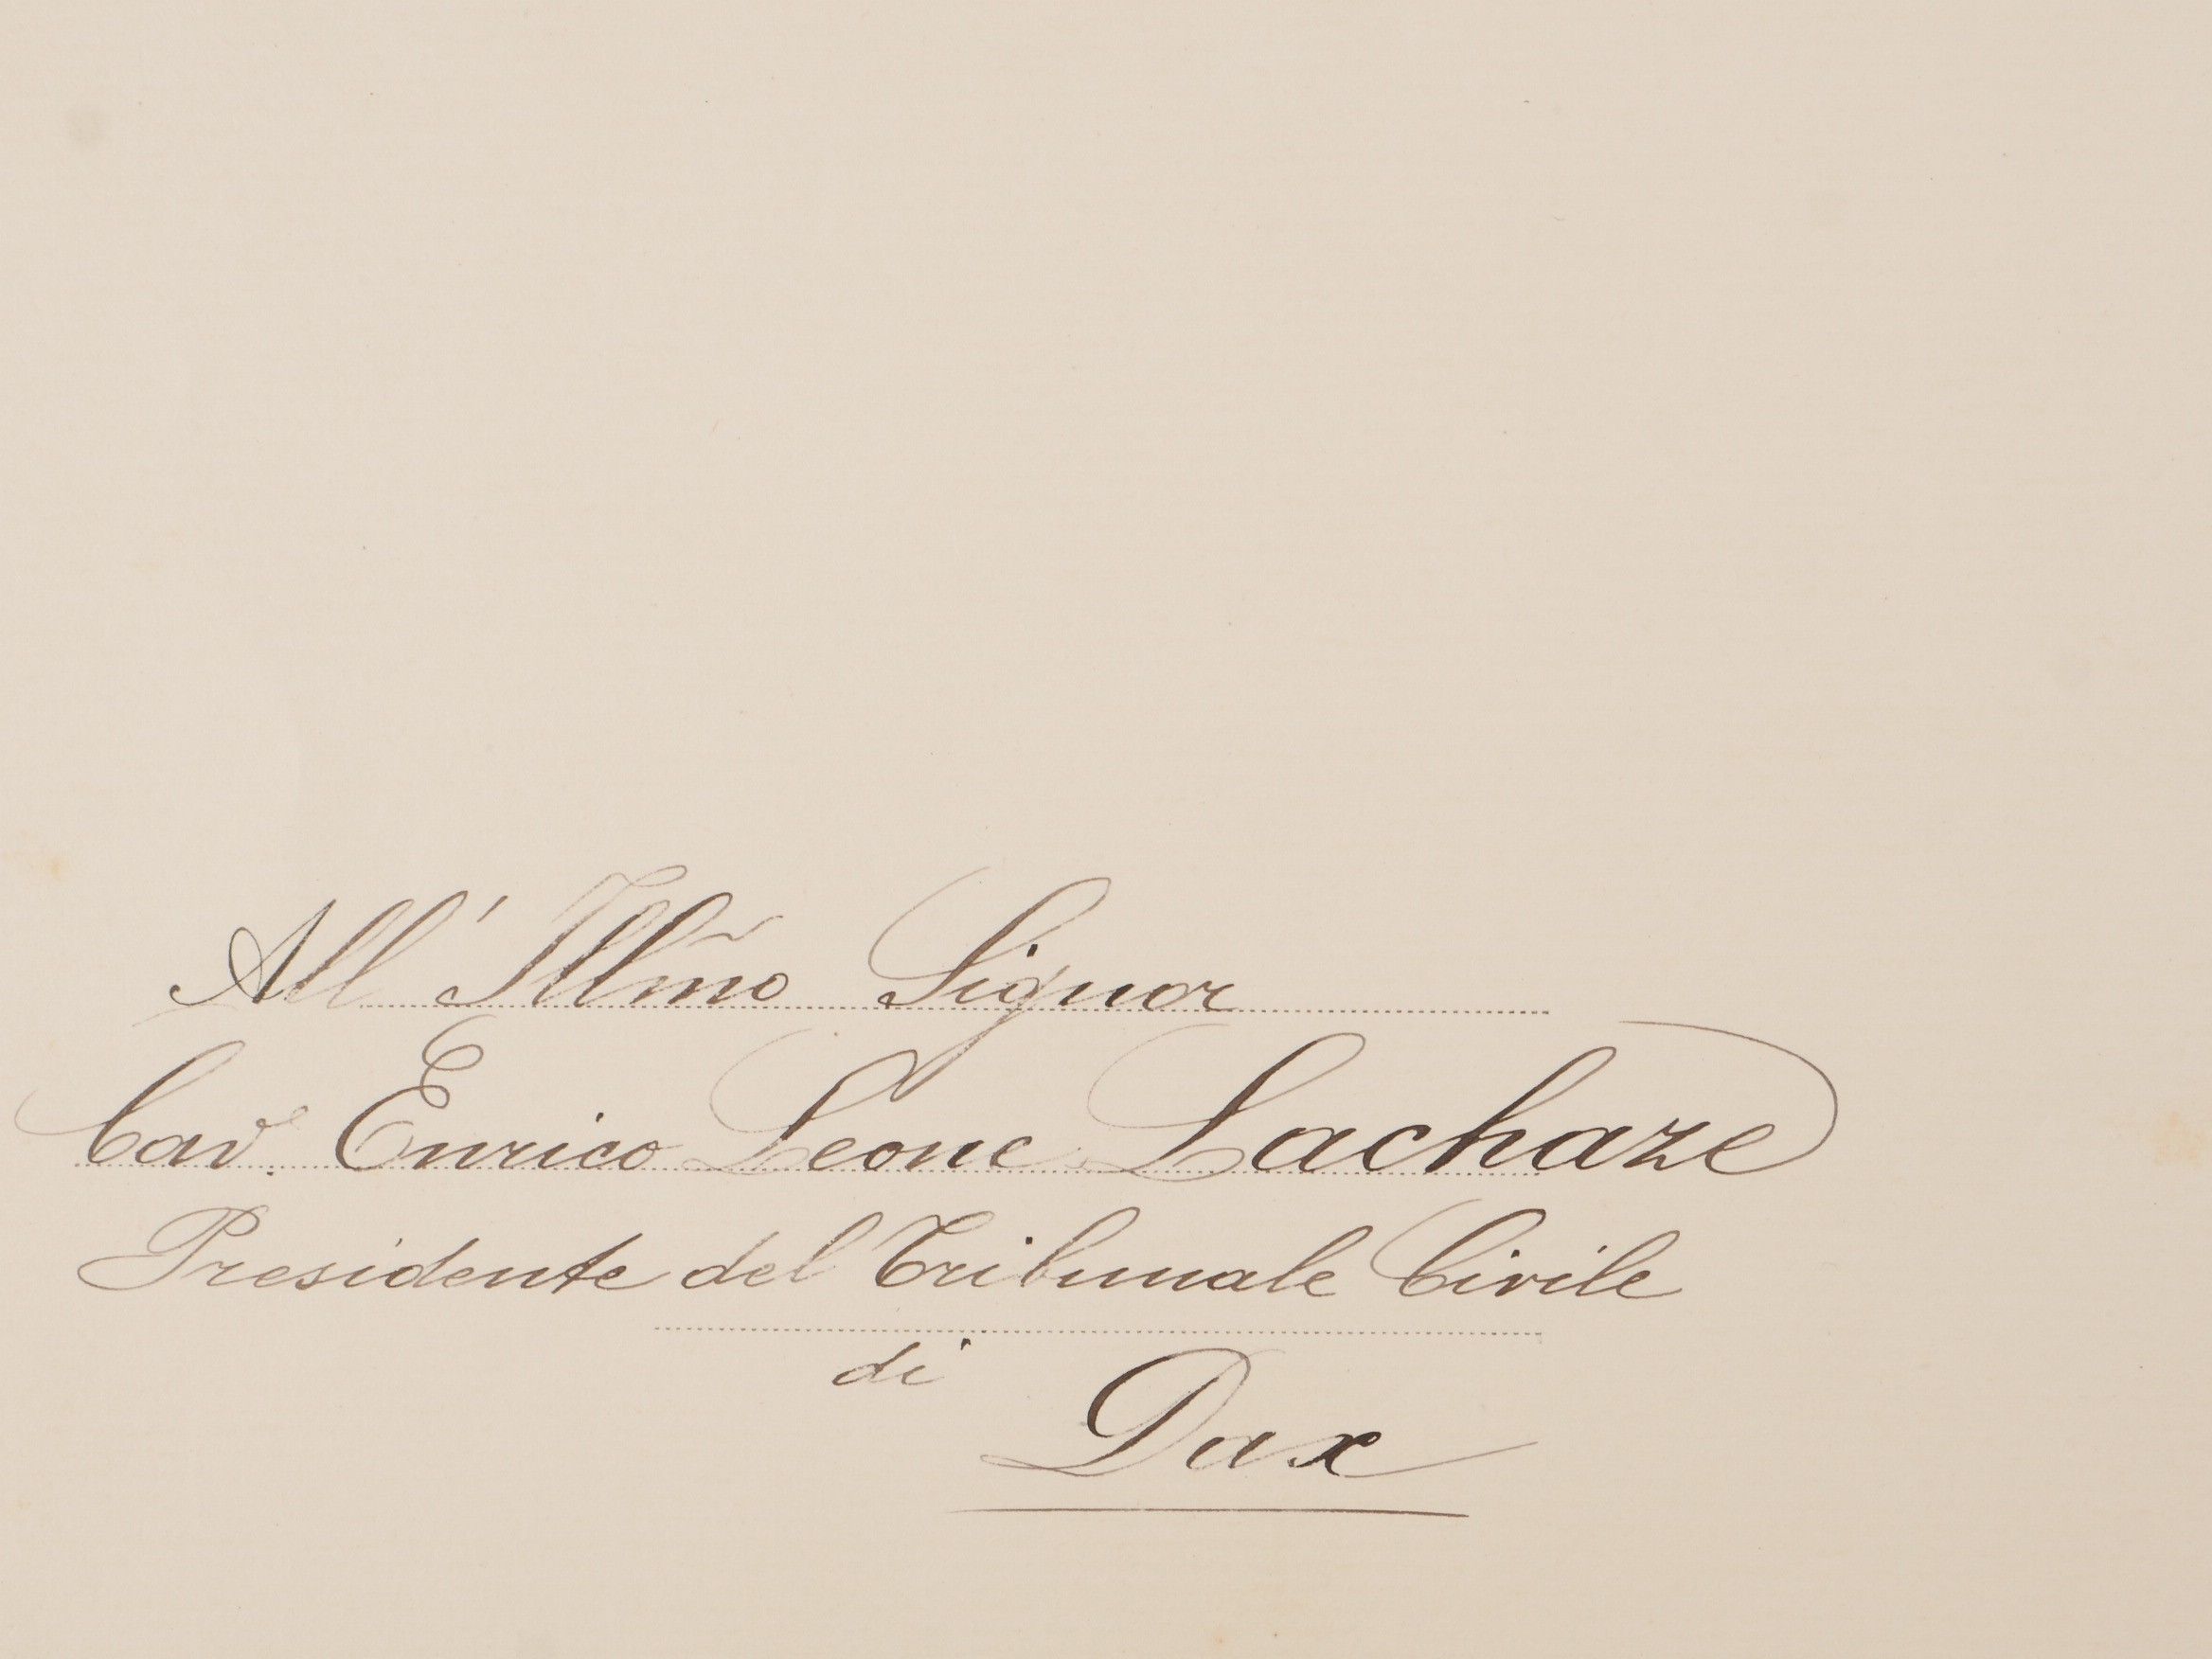 All' Illm̃o Signor
Cav. Enrico Leone Lachaze
Presidente del Tribunale Civile
di
Dax